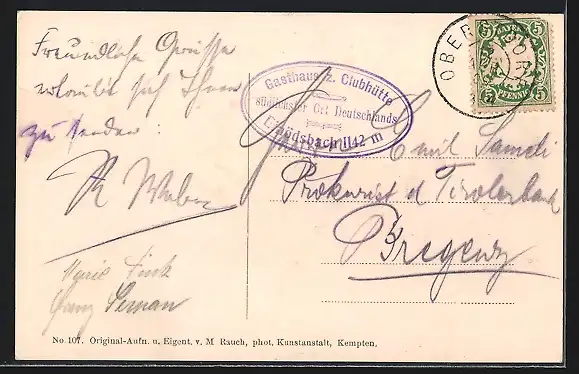 Freundliche Grüsse
erlaubt sich Ihnen
zu senden:
Weber
Marie Fink
No 107. Original-Aufn. u. Eigent. v. M Rauch, phot. Kunstanstalt, Kempten.
Gasthaus z. Clubhütte
südlichster Ort Deutschlands
Einödsbach 1142 m
OBER
BAYERN
5 5
PFENNIG
5 5
Emil
Prokurist d Tirolerbank
Bregenz